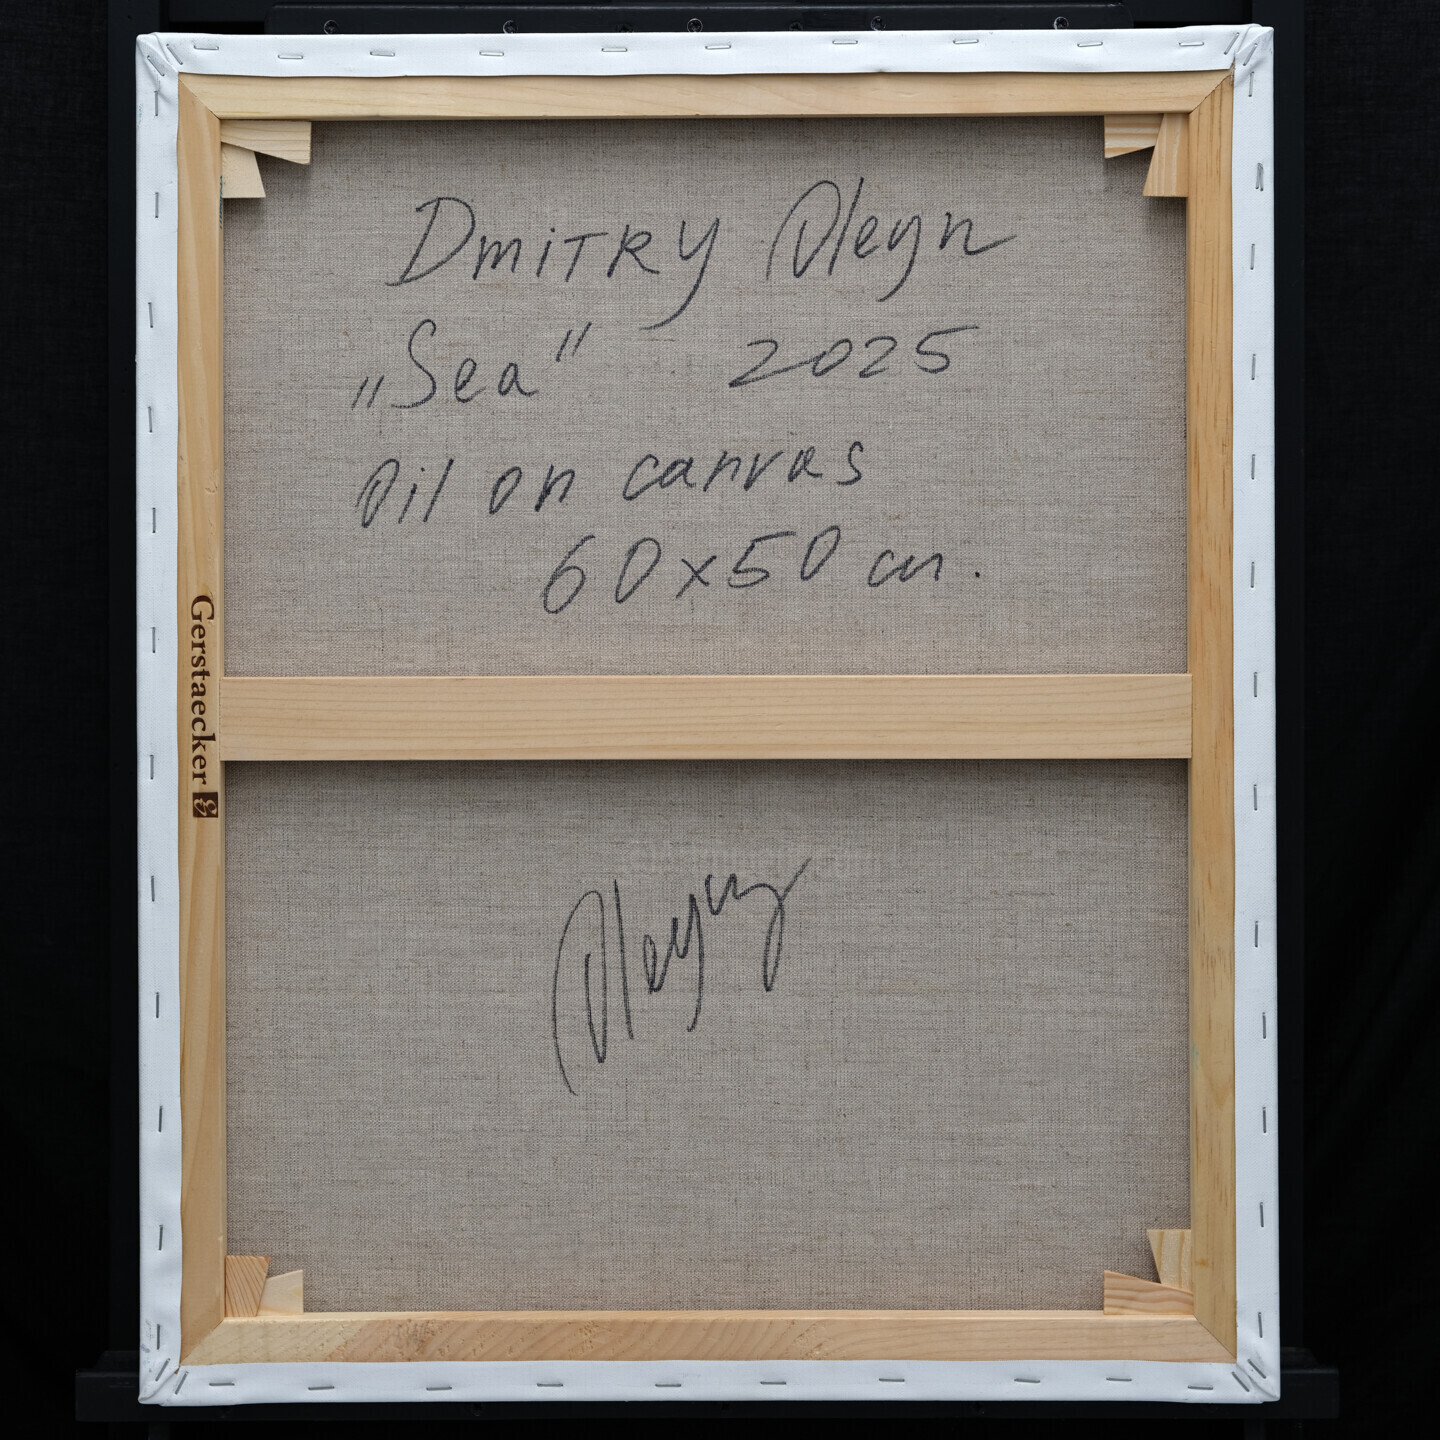 Dmitry Oleyn
„Sea" 2025
Oil on canvas
60x50 cm.
Gerstaecker
Oleyn